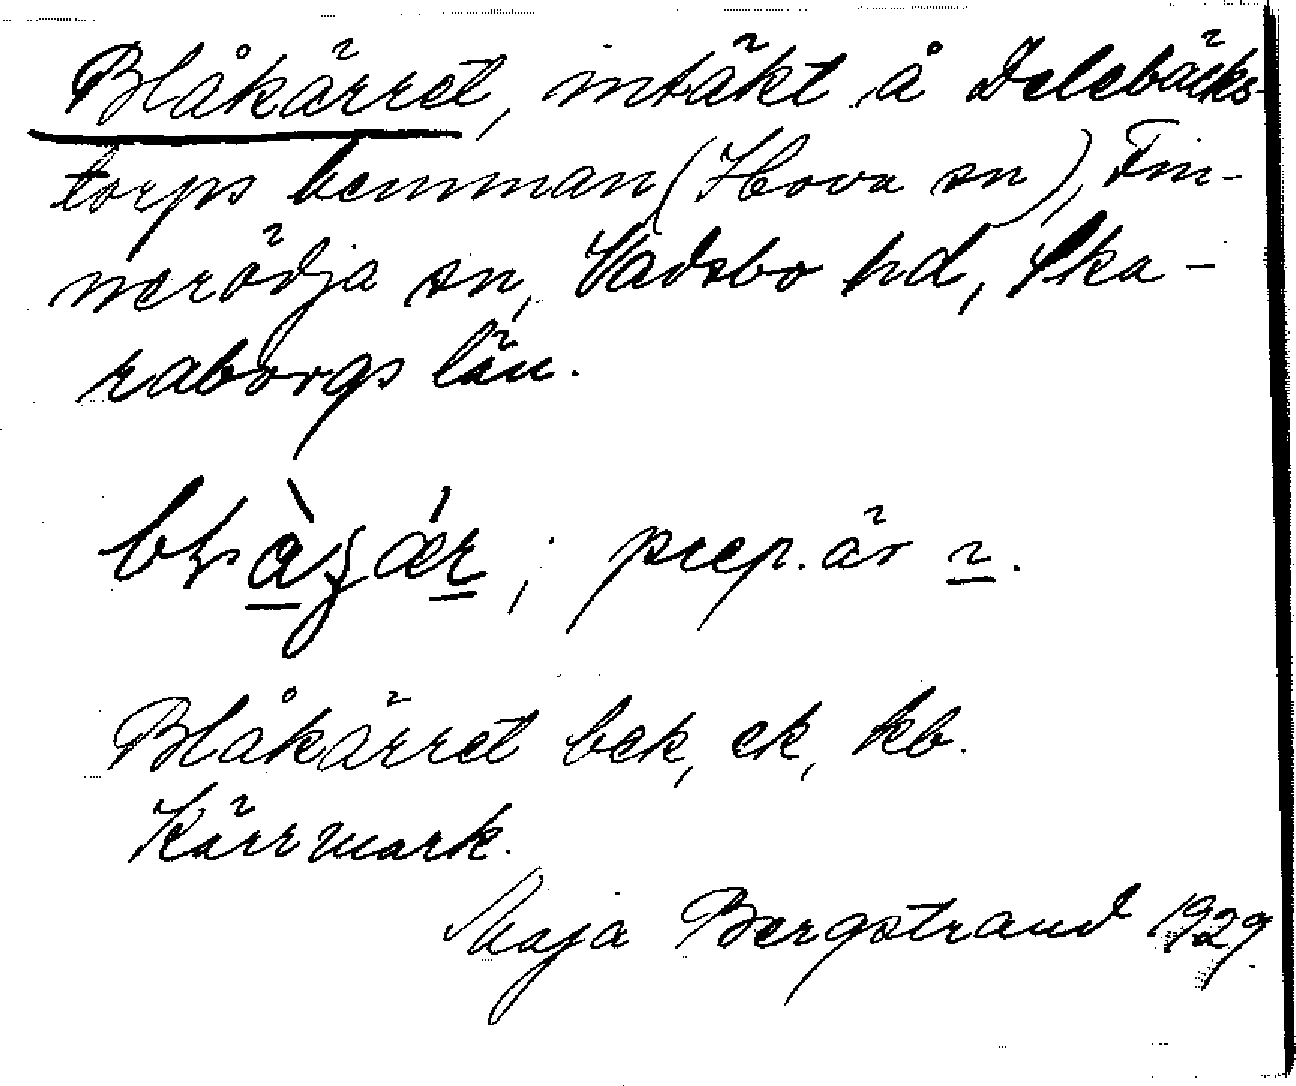 Blåkärret, intäkt å Delebäcks-
torps hemman (Hova sn), Fin-
nerödja sn, Vadsbo hd, Ska-
raborgs län.
; prep. är
Blåkärret bek, ek, kb.
Kärrmark.
Maja Bergstrand 1929